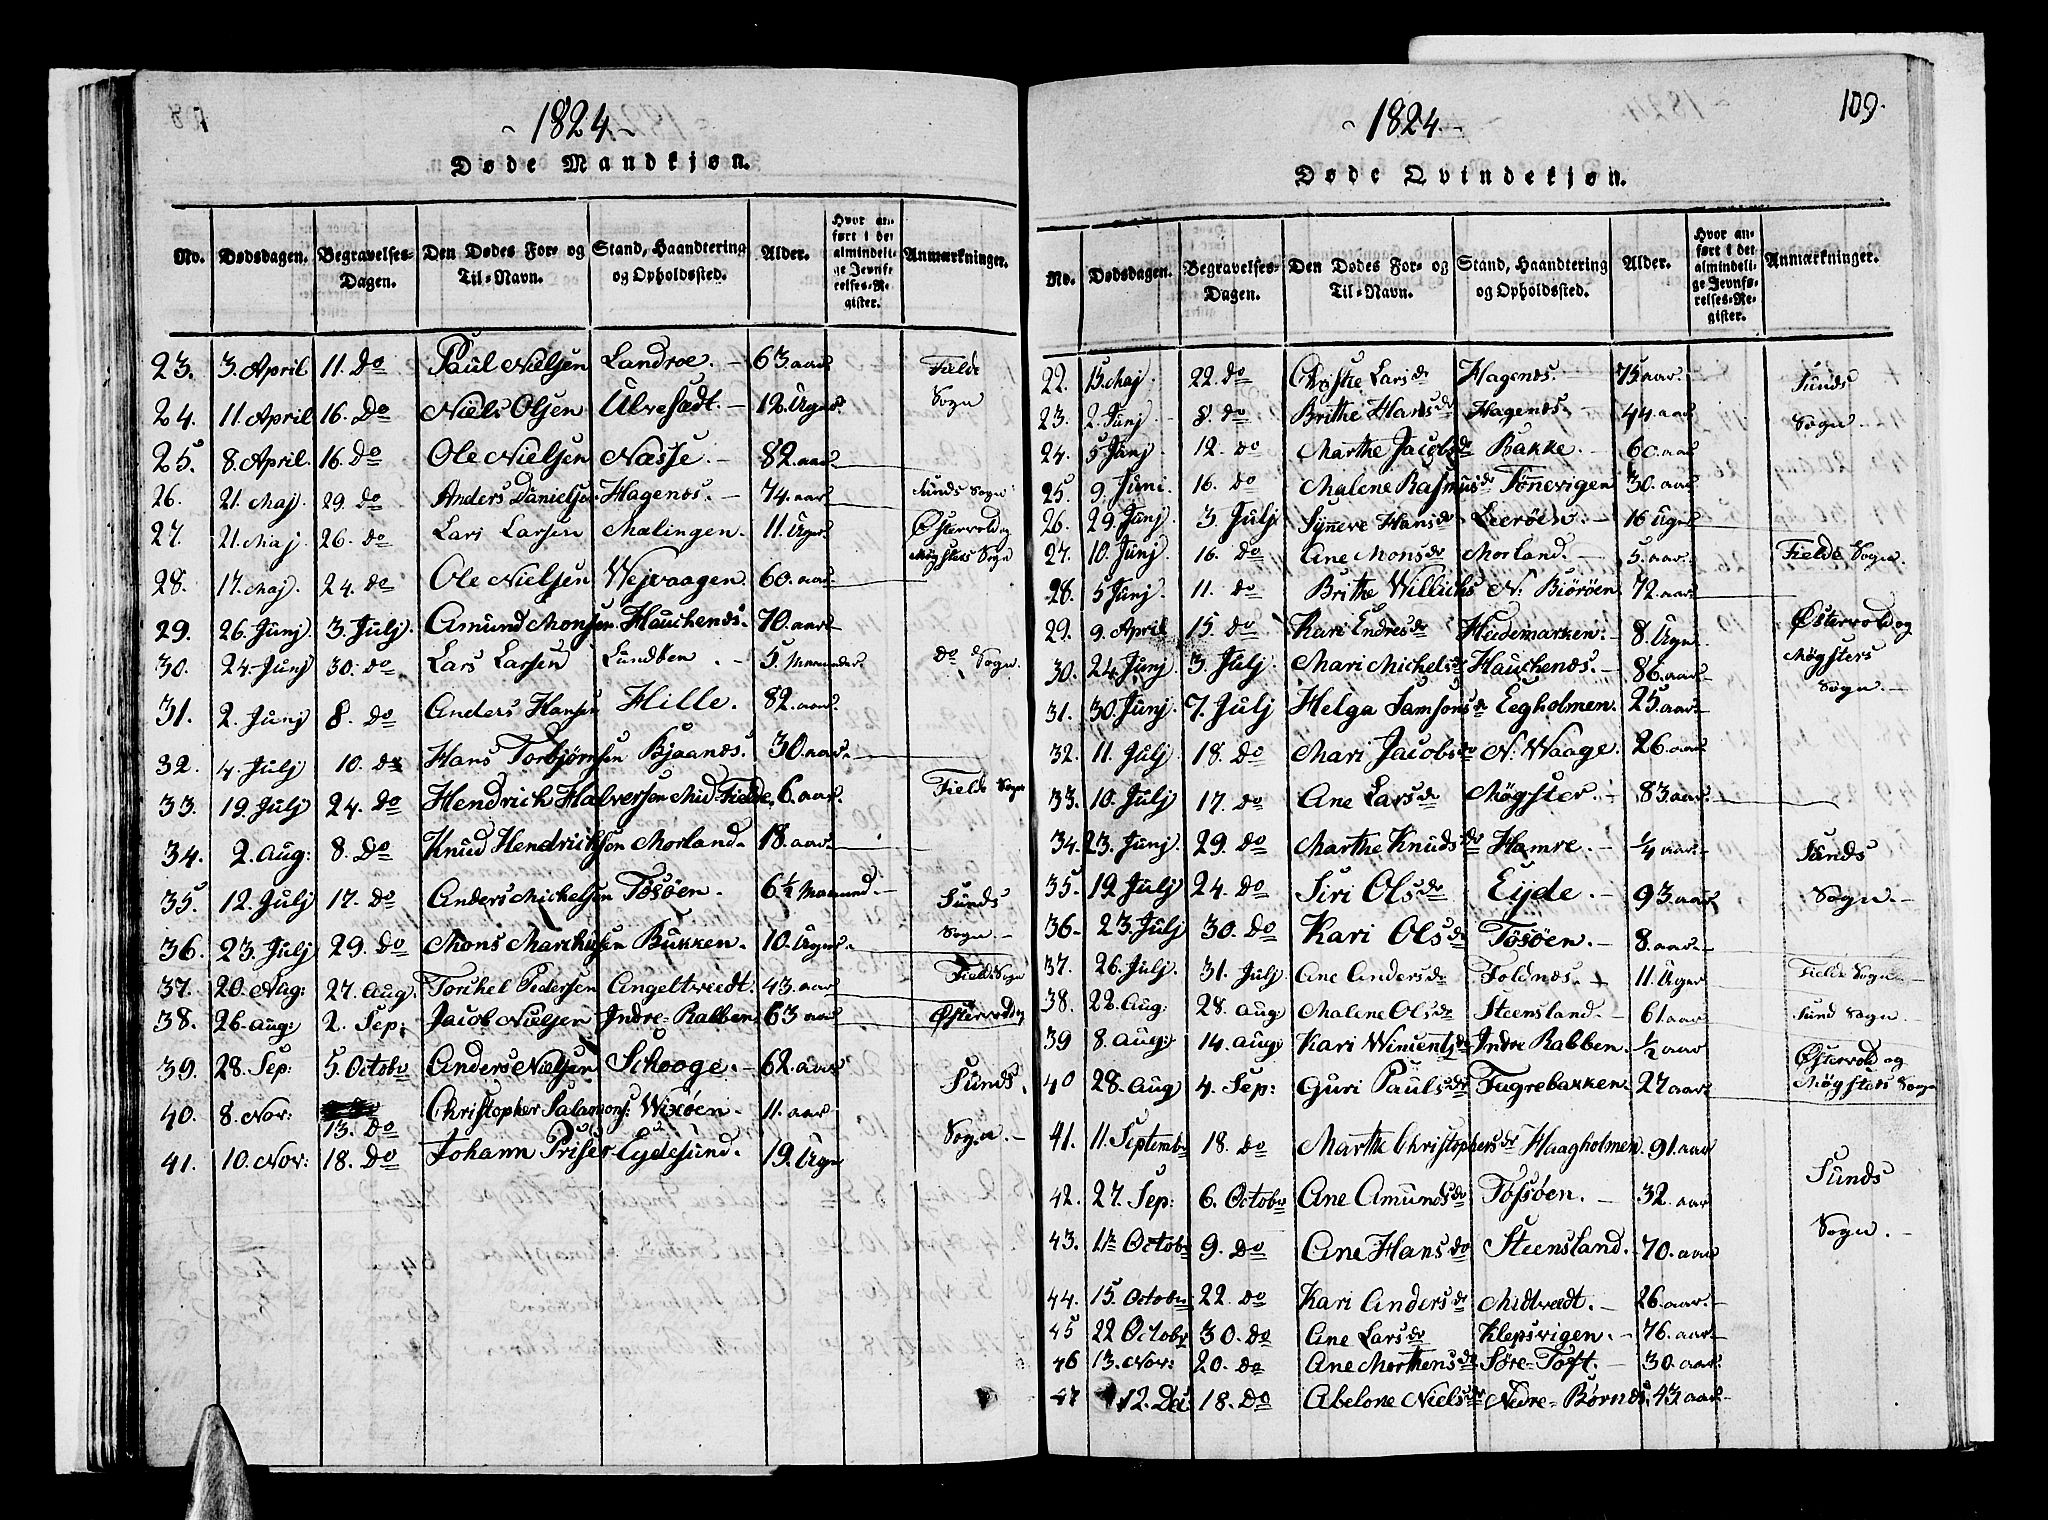 - 1824 -
Døde Mandkjøn.
No. Dødsdagen. Begravelses-Dagen. Den Dødes For- og Til-Navn. Stand, Haandtering og Opholdssted. Alder. Hvor anført i det almindelige Jevnførelses-Register. Anmærkninger.
23. 3. April 11. Do Paul Nielsen Landroe. - 63. aar Fielde
24. 11. April 16. Do Niels Olsen Ulvesædt. - 12. Uger Sogn
25. 8. April. 16. Do Ole Nielsen Næsse. - 82. aar
26. 21. Maj 29. do Anders Danielsen Hagenæs. - 74. aar Sunds Sogn
27. 21. Maj 26. do Lars Larsen Mælingen. 11. Uger. Østervold og
28. 17. Maj. 24. do Ole Nielsen Wejvaagen. 60. aar Møgsters Sogn
29. 26. Junj 3. Julj. Amund Monsen Hauchenæs. 70. aar
30. 24. Junj 30. do Lars Larsen Lundken. - 5. Maaneder. Do Sogn.
31. 2. Junj 8. do Anders Hansen Hille. 82. aar.
32. 4. Julj 10. Do Hans Torbjørnsen Bjaanæs. 30. aar
33. 19. Julj 24. do Hendrich Halversen Mid-Fielde. 6. aar. Fielde Sogn
34. 2. Aug: 8. Do Knud Hendrichsen Morland. 18. aar
35. 12. Julj 17. do Anders Michelsen Tøsøen. 6 1/2 Maaned. - Sunds
36. 23. Julj 29. Do Mons Marchusen Bukken. 10. Uger Sogn -
37. 20. Aug: 27. Aug. Torchel Pedersen Angeltvedt. 43. aar Fielde Sogn
38. 26. aug: 2. Sep: Jacob Nielsen Indre-Rabben 63 aar Østervold og
39. 28. Sep: 5. Octobr Anders Nielsen Schooge. - 62. aar Sunds
40. 8. Nov: 13. Do Christopher Salamons: Wixøen. 11. aar
41. 10. Nov: 18. Do Johann Priser Eydesund. 19. Uger Sogn. -
- 1824. - 109.
Døde Qvindekjøn.
No. Dødsdagen. Begravelses-Dagen. Den Dødes For- og Til-Navn. Stand, Haandtering og Opholdssted. Alder. Hvor anført i det almindelige Jevnførelses-Register. Anmærkninger.
22. 15. Maj. 22. do Christie Larsdr Hagenæs. - 75. aar. Sunds
23. 2. Junj 8. do Brithe Hansdr Hagenæs. 44. aar Sogn
24. 5 Junj 12. do Marthe Jacobsdr Bakke. - 60. aar
25. 9. Juni. 16. do Malene Rasmusdr Tønevigen 30. aar
26. 29. Junj 3. Julj Synneve Hansdr Leerøen. - 16 Uger
27. 10. Junj 16. do Ane Monsdr Morland. - 5. aar Fielde Sogn.
28. 5 Junj. 11. do Brithe Willichs N: Biørøen 72. aar
29. 9. April 15. do Kari Endresdr Heidemarken. - 8. Uger Østervold og
30. 24. Junj 3. Julj. Mari Michelsdr Hauchenæs. - 86. aar Møgsters
31. 30. Junj. 7. Julj Helga Samsonsdr Eegholmen. 25. aar Sogn. -
32. 11. Julj 18. Do Mari Jacobsdr N: Waage. 26. aar
33. 10. Julj 17. do Ane Larsdr Møgster. - 83. aar.
34. 23. Junj. 29. Do Marthe Knudsdr Hamre. - 1/4 aar Sunds
35. 19. Julj 24. do Siri Olsdr Eyde. - 93. aar Sogn. -
36. 23. Julj 30. do Kari Olsdr Tøsøen. - 8. aar
37. 26. Julj. 31. Julj Ane Andersdr Foldnæs. - 11. Uger Fielde Sogn -
38. 22. Aug: 28. Aug Malene Olsdr Steensland. - 61. aar Sund Sogn.
39 8. Aug: 14. Aug: Kari Wincentzdr Indre Rabben. 1/2 aar Østervold og
40 28. Aug 4. Sep: Guri Paulsdr Fagrebakken 27 aar. Møgsters Sogn
41. 11. Septembr 18. Do Marthe Christophersdr Haagholmen. 91. aar
42. 27. Sep: 6. Octobr Ane Amundsdr Tøsøen. - 32. aar Sunds
43. 1te Octobr 9. Do Ane Hansdr Steensland. - 70. aar Sogn. -
44. 15. Octobr 22. Do Kari Andersdr Midtvedt. - 26. aar. -
45 22 Octobr 30. Do Ane Larsdr Klepsvigen. - 76. aar
46 13. Nov: 20. Do Ane Morthensdr Søre-Toft. - 30. aar
47 12. Dec: 18. Do Abelone Nielsdr Nedre-Børnæs. 43 aar -